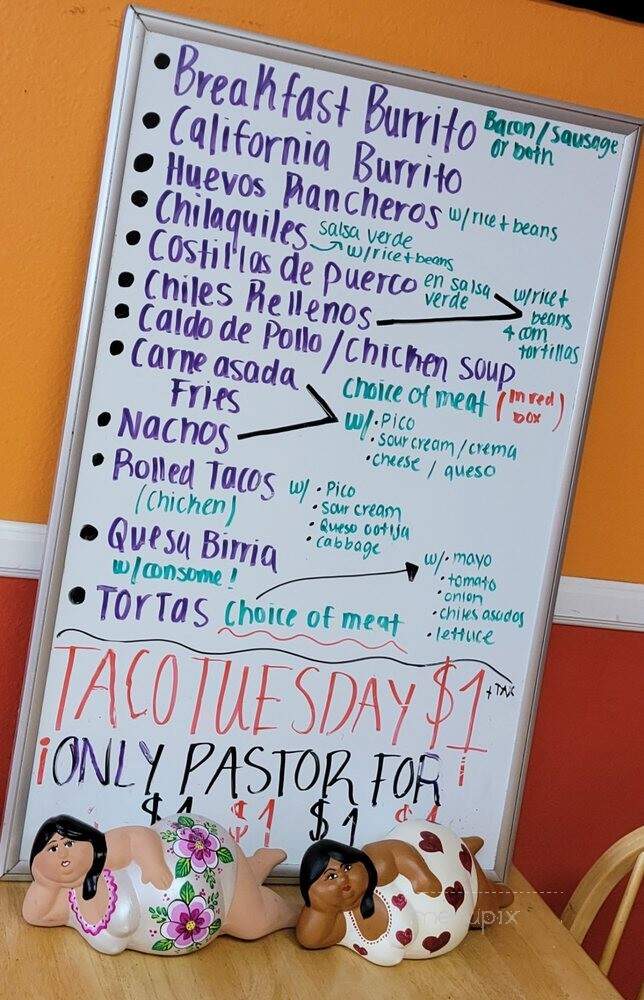 • Breakfast Burrito Bacon/sausage
or both
• California Burrito
• Huevos Rancheros w/rice + beans
• Chilaquiles salsa verde
w/rice + beans
• Costillas de puerco en salsa
verde
• Chiles Rellenos
w/rice +
beans
+ corn
tortillas
• Caldo de Pollo/Chicken soup
• Carne asada
Fries
choice of meat (in red)
box
• Nachos
w/• Pico
• sour cream/crema
• cheese/queso
• Rolled Tacos
(Chicken)
w/ • Pico
• sour cream
• Queso cotija
• cabbage
• Quesa Birria
w/consome!
• Tortas choice of meat
w/• mayo
• tomato
• onion
• chiles asados
• lettuce
TACO TUESDAY $1 + TAX
¡ONLY PASTOR FOR
$1 $1 $1 $1